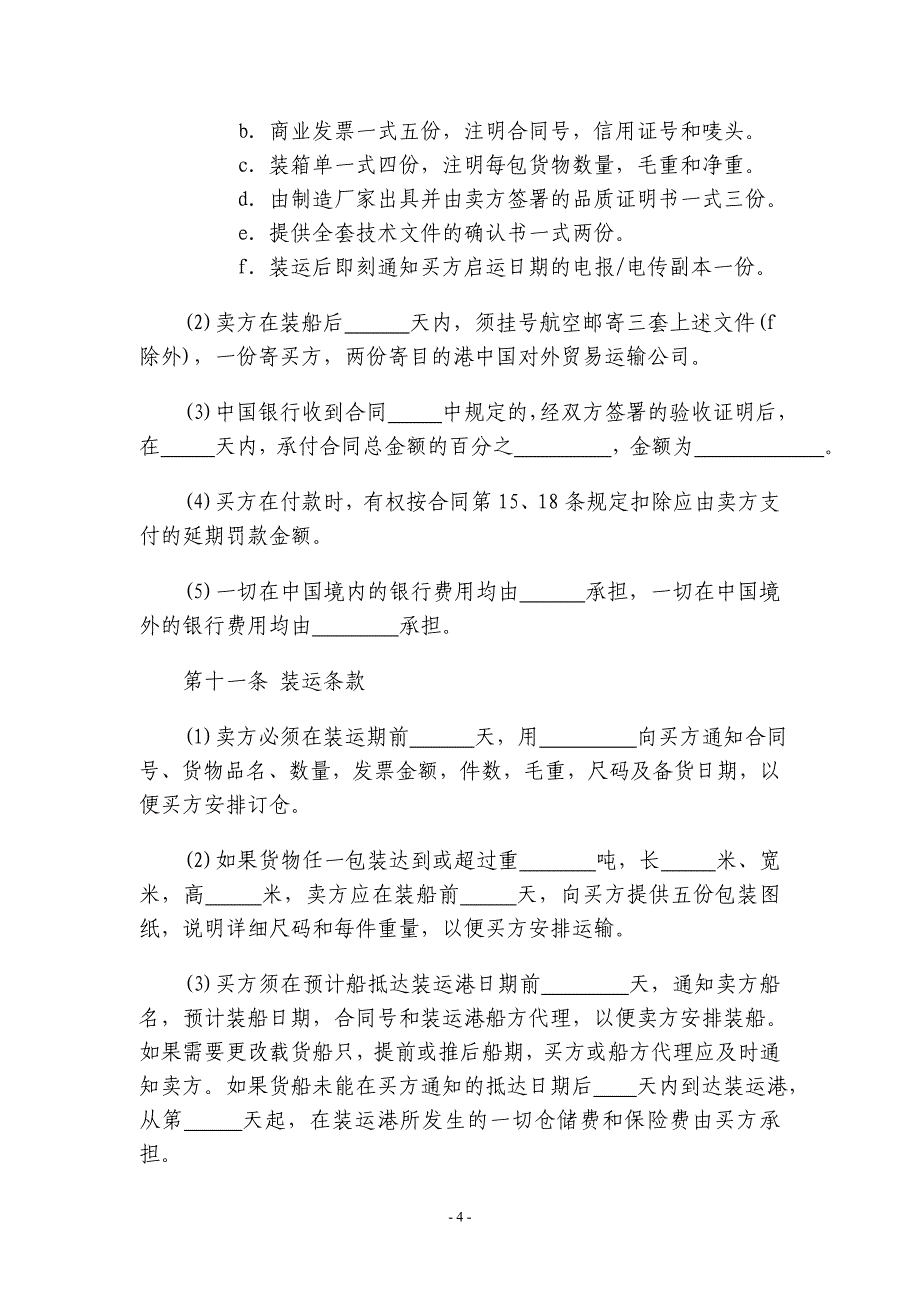 b．商业发票一式五份，注明合同号，信用证号和唛头。
c．装箱单一式四份，注明每包货物数量，毛重和净重。
d．由制造厂家出具并由卖方签署的品质证明书一式三份。
e．提供全套技术文件的确认书一式两份。
f．装运后即刻通知买方启运日期的电报/电传副本一份。
(2)卖方在装船后______天内，须挂号航空邮寄三套上述文件(f
除外)，一份寄买方，两份寄目的港中国对外贸易运输公司。
(3)中国银行收到合同_____中规定的，经双方签署的验收证明后，
在_____天内，承付合同总金额的百分之_________，金额为____________。
(4)买方在付款时，有权按合同第 15、18 条规定扣除应由卖方支
付的延期罚款金额。
(5)一切在中国境内的银行费用均由______承担，一切在中国境
外的银行费用均由________承担。
第十一条 装运条款
(1)卖方必须在装运期前______天，用_________向买方通知合同
号、货物品名、数量，发票金额，件数，毛重，尺码及备货日期，以
便买方安排订仓。
(2)如果货物任一包装达到或超过重_______吨，长_____米、宽
米，高_____米，卖方应在装船前_____天，向买方提供五份包装图
纸，说明详细尺码和每件重量，以便买方安排运输。
(3)买方须在预计船抵达装运港日期前________天，通知卖方船
名，预计装船日期，合同号和装运港船方代理，以便卖方安排装船。
如果需要更改载货船只，提前或推后船期，买方或船方代理应及时通
知卖方。如果货船未能在买方通知的抵达日期后____天内到达装运港，
从第_____天起，在装运港所发生的一切仓储费和保险费由买方承
担。
- 4 -